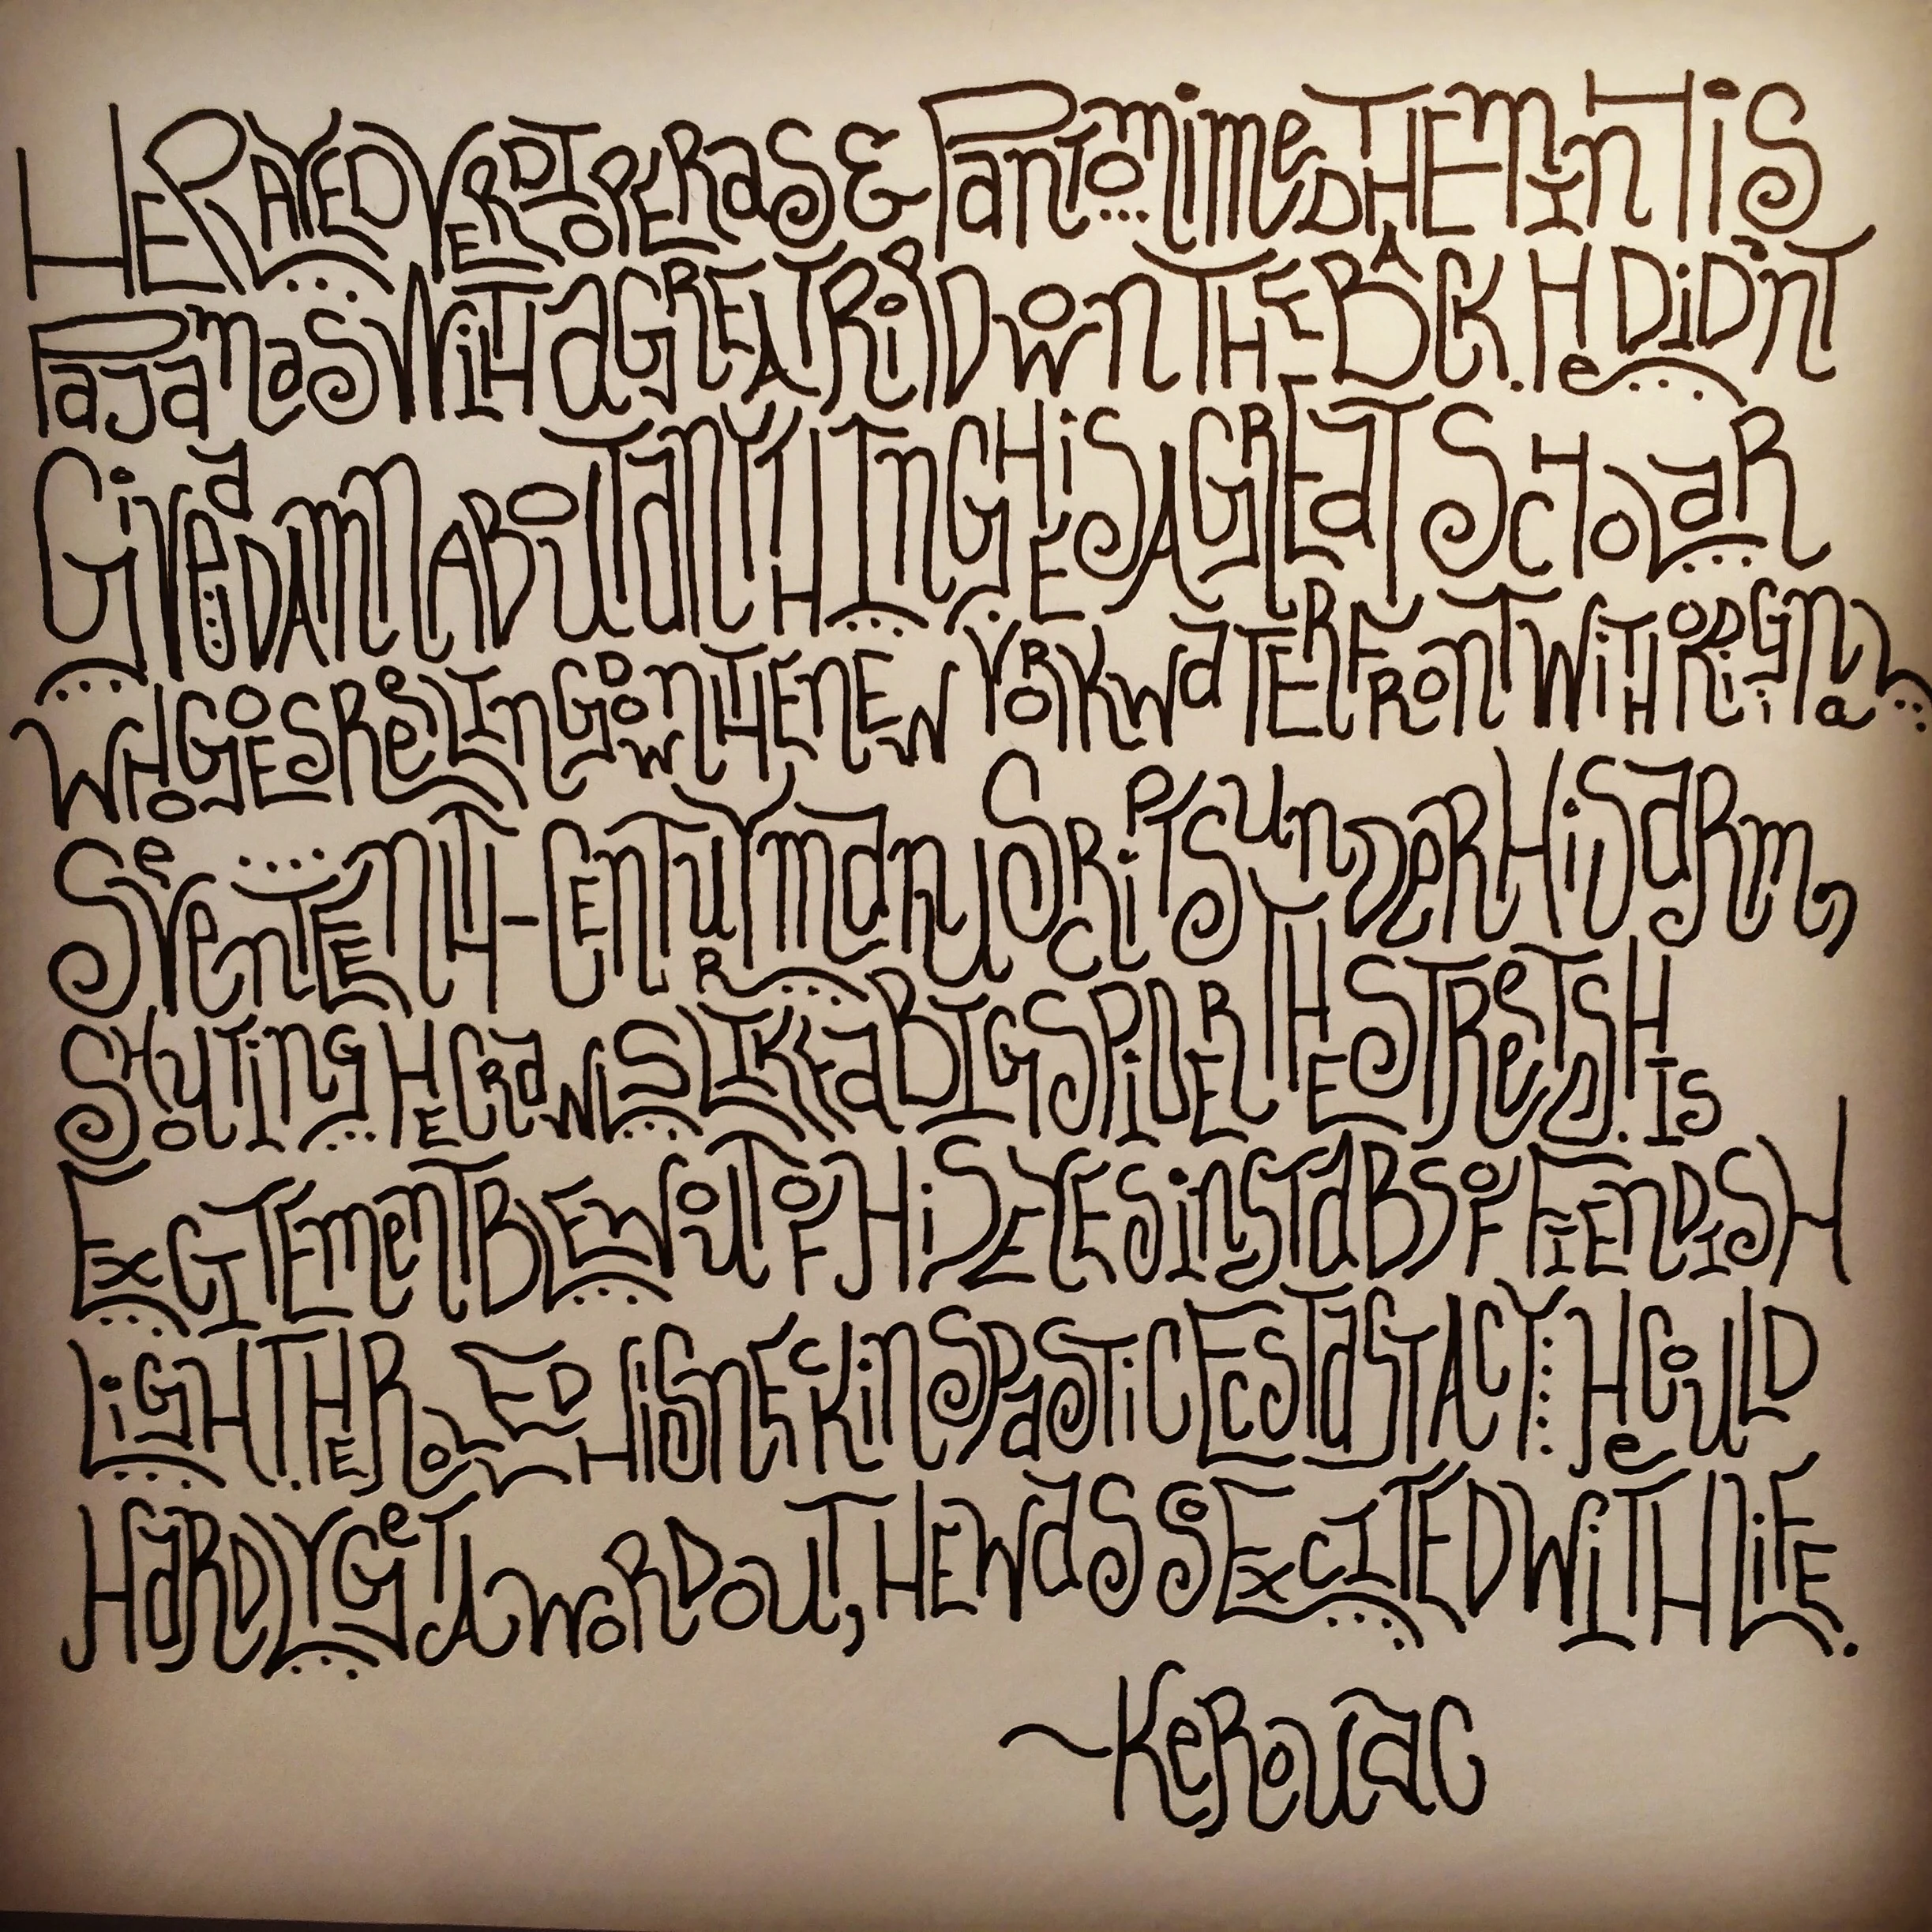 He Played Verdi Operas & Pantomimed Them in His
Pajamas With a Great Rip Down The Back. He Didn't
Give a Damn About Anything He is A Great Scholar
Who Goes Reeling Down The New York Waterfront With Original
Seventeenth-Century Manuscripts Under His Arm,
Shouting He Crawls Like a Big Spider The Streets. His
Excitement Blew Out Of His Eyes in Stabs of Fiendish
Light. He Rolled His Neck in Spastic Ecstasy He Could
Hardly Get A Word Out, He Was So Excited With Life.
~Kerouac